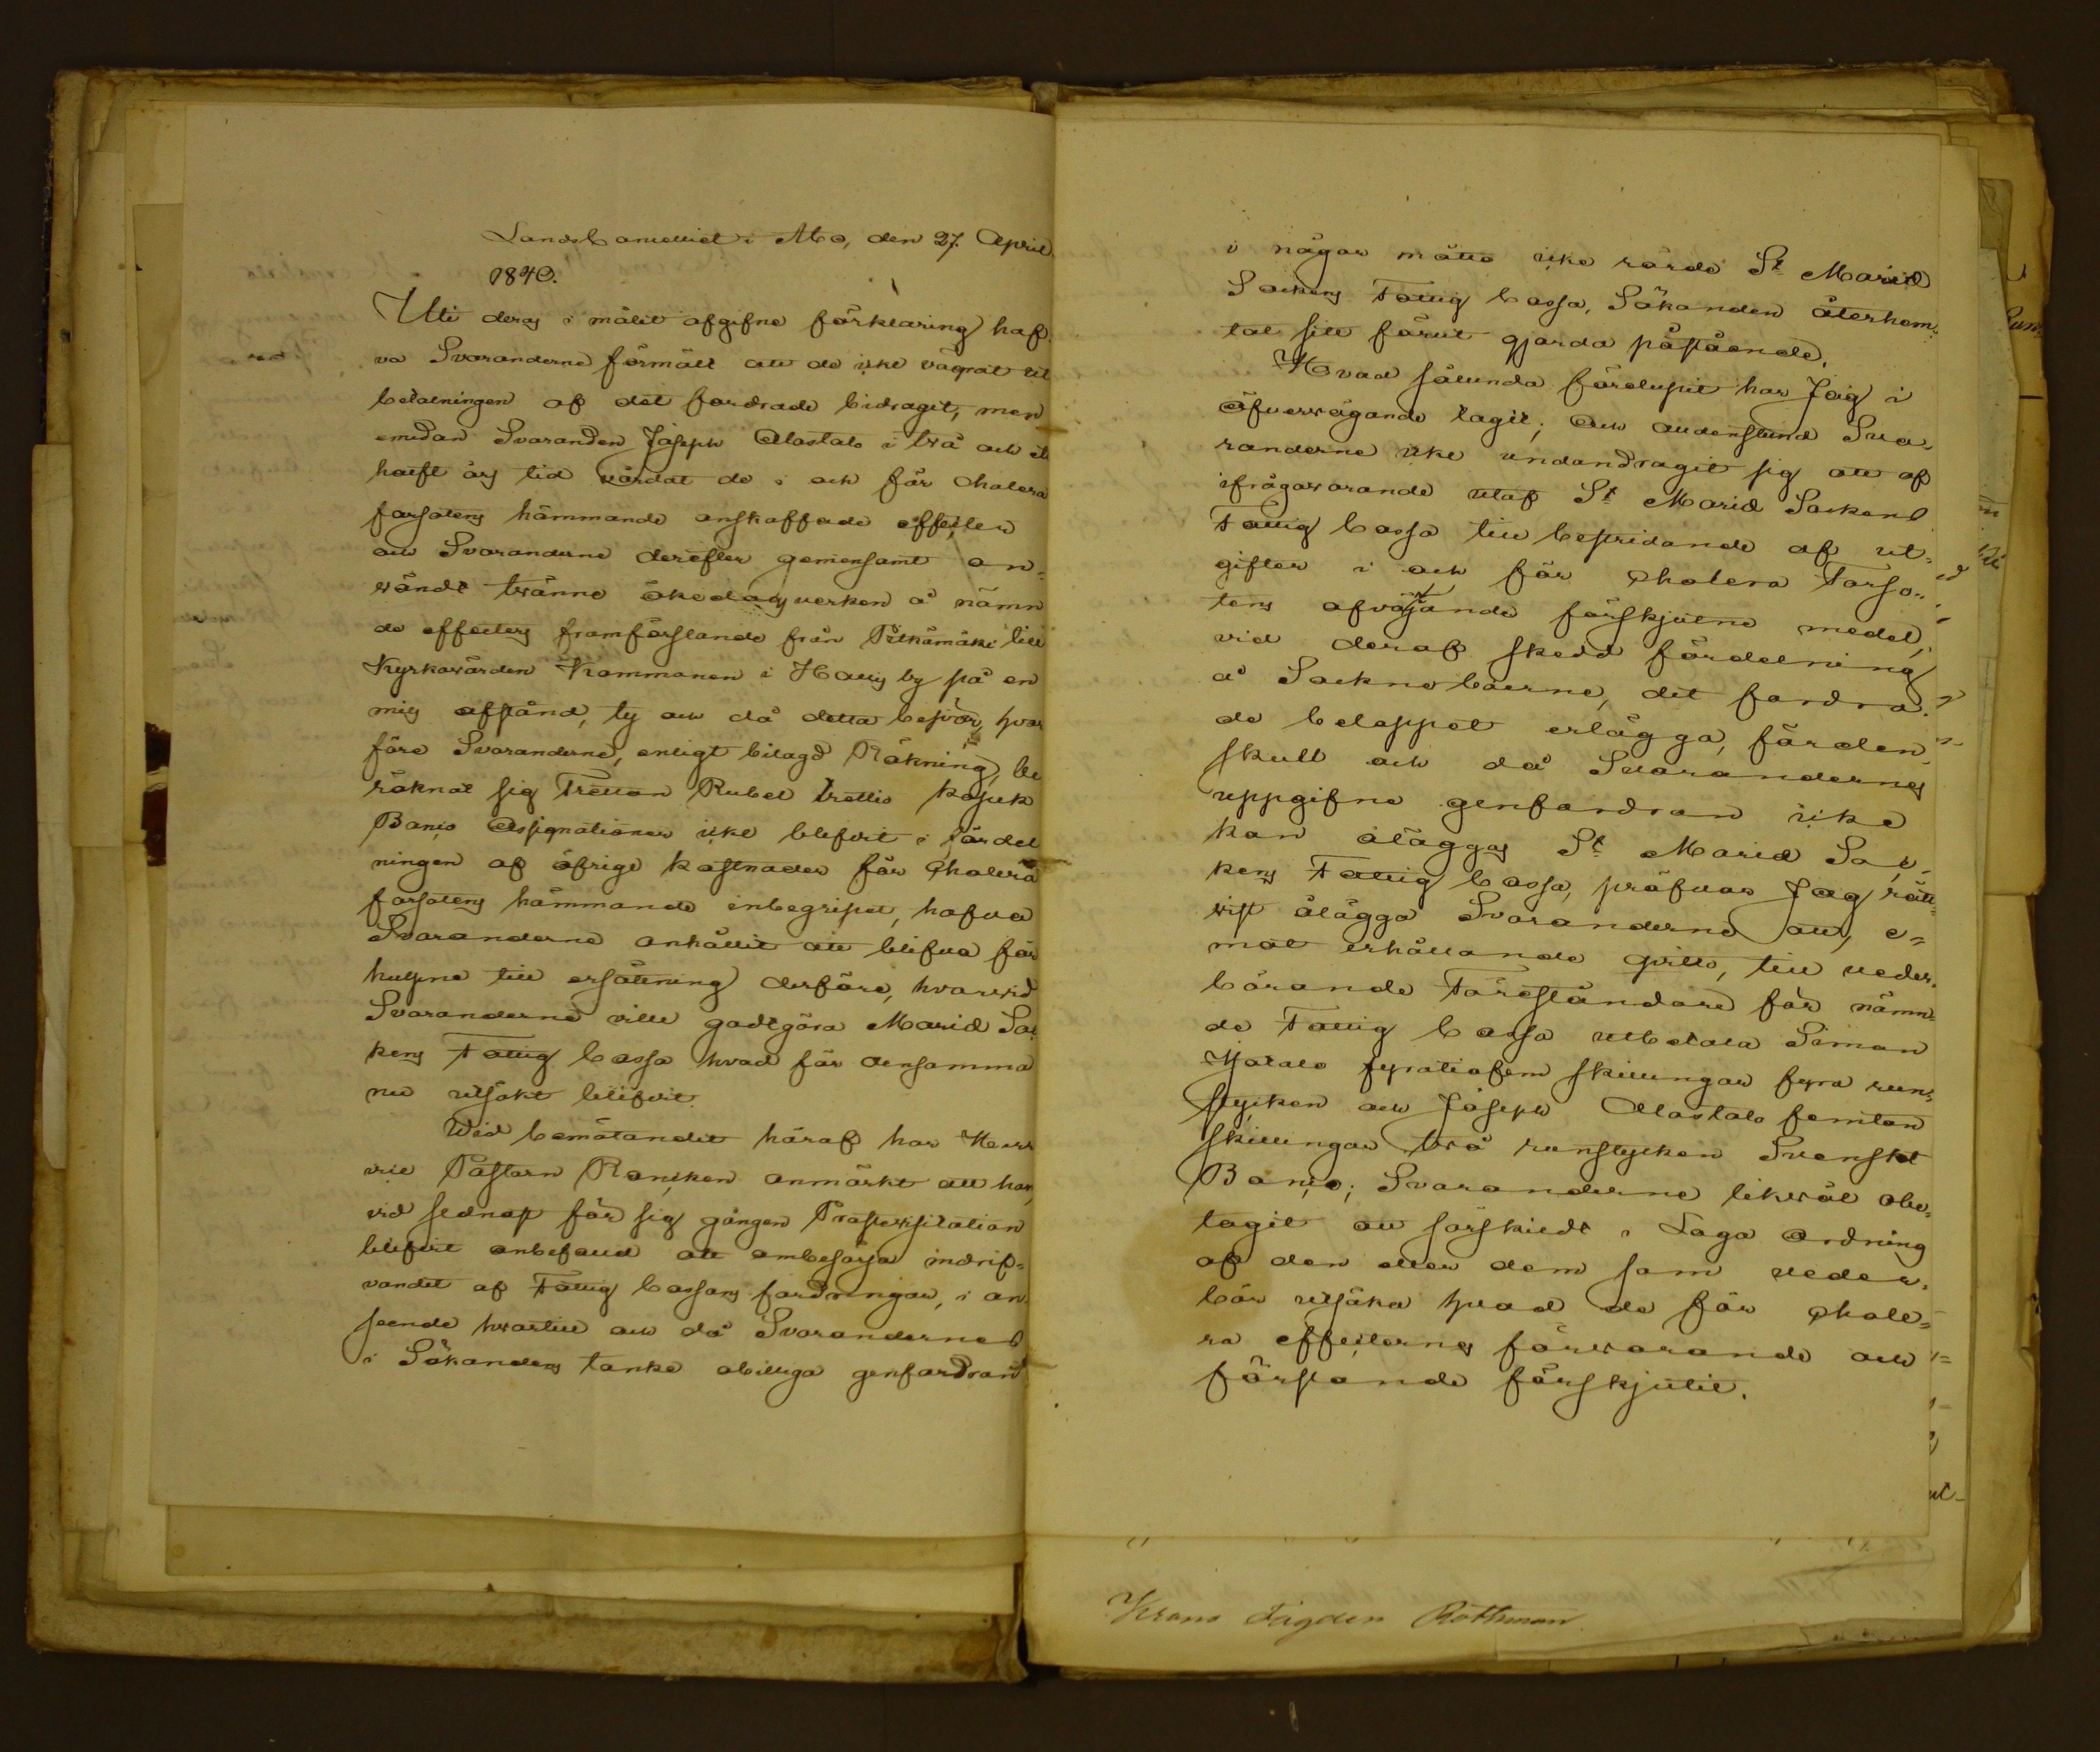 LandsCancelliet i Åbo, den 27. April
1840.
Uti deras i målet afgifne förklaring haf
va Svaranderne förmält att de icke vägrat til
betalningen af det fordrade bidraget, men
emedan Svaranden Joseph Alastalo i två och ett
halft års tid vårdat de i och för Cholera
farsotens hämmande anskaffade effecter
och Svaranderne derefter gemensamt an=
vändt tvänne ökedagsverken å nämn
de effecters framförslande från Pitkämäki till
Kyrkovärden Krommanen i Hallis by på en
mils afstånd, ty och då detta besvär, hvar
före Svaranderne, enligt bilagd Räkning, be
räknat sig Tretton Rubel trettio kopek
Banco Assignationer icke blifvit i fördel
ningen af öfrige kostnader för Cholera
farsotens hämmande inbegripet, hafva
Svaranderne anhållit att blifva för
hulpne till ersättning derföre, hvarvid
Svaranderne ville godtgöra Mariæ Soc
kens Fattig Cassa hvad för densamma
nu utsökt blifvit.
Wid bemötandet häraf har Herr
vice Pastorn Rancken anmärkt att han
vid sednast för sig gången Prostvisitation
blifvit anbefald att ombesörja indrif=
vandet af Fattig Cassans fordringar, i an
seende hvartill och då Svarandernes
i Sökandens tanke obilliga genfordran
i någor måtto icke rörde St Mariæ
Sockens Fattig Cassa, Sökanden återhem=
tat sitt förut gjorda påstående.
Hvad sålunda förelupit har Jag i
öfvervägande tagit; Och alldenstund Sva=
randerne icke undandragit sig att af
ifrågavarande utaf St Mariæ Sockens
Fattig Cassa till bestridande af ut=
gifter i och för Cholera Farso=
tens afvärjande förskjutne medel,
vid deraf skedd fördelning
å Sockneboerne, det fordra=
de beloppet erlägga, förden=
skull och då Svarandernes
uppgifne genfordran icke
kan åläggas St Mariæ Soc=
kens Fattig Cassa, pröfvar Jag rätt=
vist ålägga Svaranderne att, e=
mot erhållande qvitto, till veder=
börande Föreståndare för nämn=
de Fattig Cassa utbetala Simon
Yjatalo fyratiofem skillingar fyra run=
stycken och Joseph Alastalo femton
skillingar två runstycken Svenskt
Banco; Svaranderne likväl obe=
tagit att särskildt i Laga Ordning
af den eller dem som veder=
bör utsöka hvad de för Chole=
ra effecternes förvarande och
förslande förskjutit.
Krono Fogden Rothman